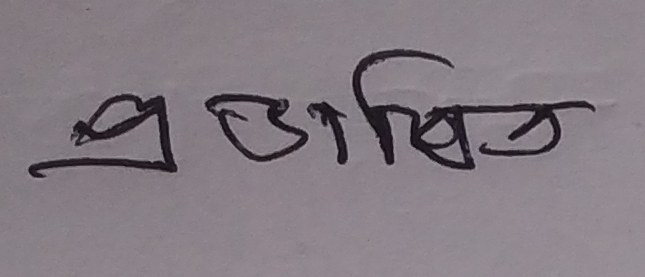 প্রভাষিত